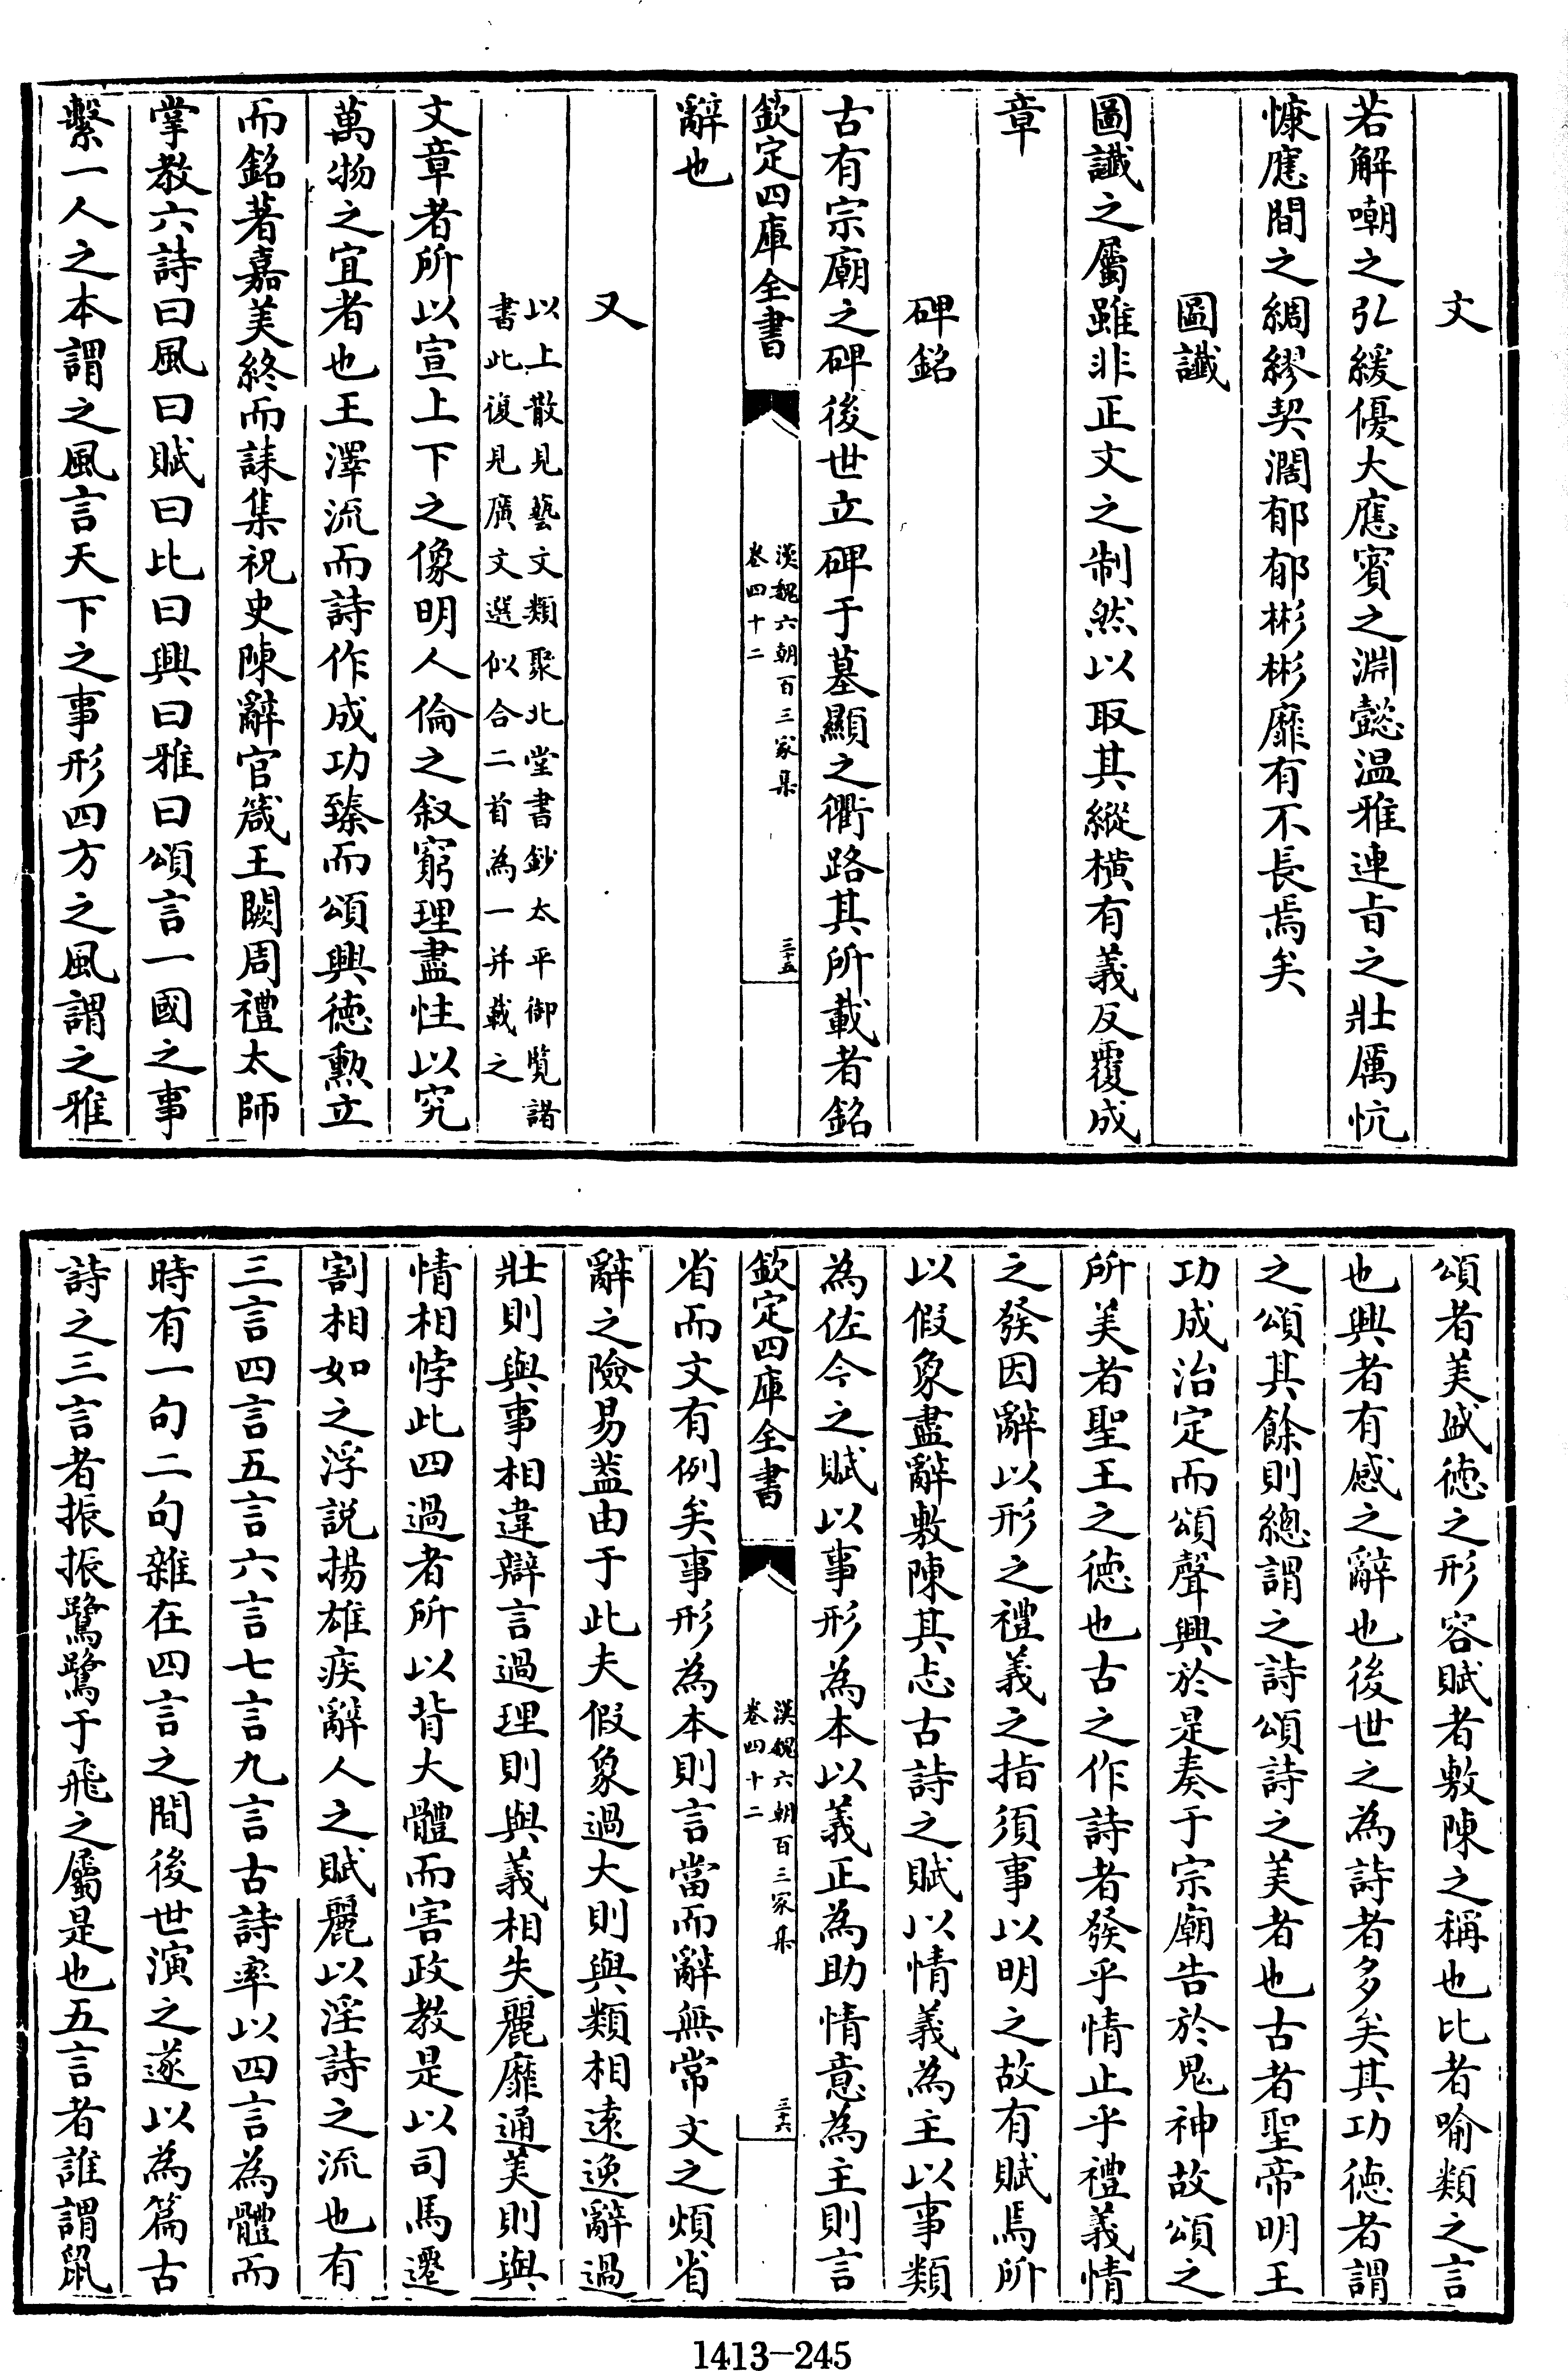 文
若解嘲之弘緩優大應賓之淵懿温雅連㫖之壯厲忼
慷應間之綢繆契濶郁郁彬彬靡有不長焉矣
圖讖
圖讖之屬雖非正文之制然以取其縱橫有義反覆成
章
碑銘
古有宗廟之碑後世立碑于墓顯之衢路其所載者銘
欽定四庫全書
漢魏六朝百三家集
卷四十二
三十五
辭也
又
以上散見藝文類聚北堂書鈔太平御覽諸
書此復見廣文選似合二首為一并載之
文章者所以宣上下之像明人倫之叙窮理盡性以究
萬物之宜者也王澤流而詩作成功臻而頌興徳勲立
而銘著嘉美終而誄集祝史陳辭官箴王闕周禮太師
掌教六詩曰風曰賦曰比曰興曰雅曰頌言一國之事
繫一人之本謂之風言天下之事形四方之風謂之雅
頌者美盛徳之形容賦者敷陳之稱也比者喻類之言
也興者有感之辭也後世之為詩者多矣其功徳者謂
之頌其餘則總謂之詩頌詩之美者也古者聖帝明王
功成治定而頌聲興於是奏于宗廟告於鬼神故頌之
所美者聖王之徳也古之作詩者發乎情止乎禮義情
之發因辭以形之禮義之指須事以明之故有賦焉所
以假象盡辭敷陳其志古詩之賦以情義為主以事類
為佐今之賦以事形為本以義正為助情意為主則言
欽定四庫全書
漢魏六朝百三家集
卷四十二
三十六
省而文有例矣事形為本則言當而辭無常文之煩省
辭之險易葢由于此夫假象過大則與類相逺逸辭過
壯則與事相違辯言過理則與義相失麗靡通美則與
情相悖此四過者所以背大體而害政教是以司馬遷
割相如之浮說揚雄疾辭人之賦麗以淫詩之流也有
三言四言五言六言七言九言古詩率以四言為體而
時有一句二句雜在四言之間後世演之遂以為篇古
詩之三言者振振鷺鷺于飛之屬是也五言者誰謂鼠
1413-245